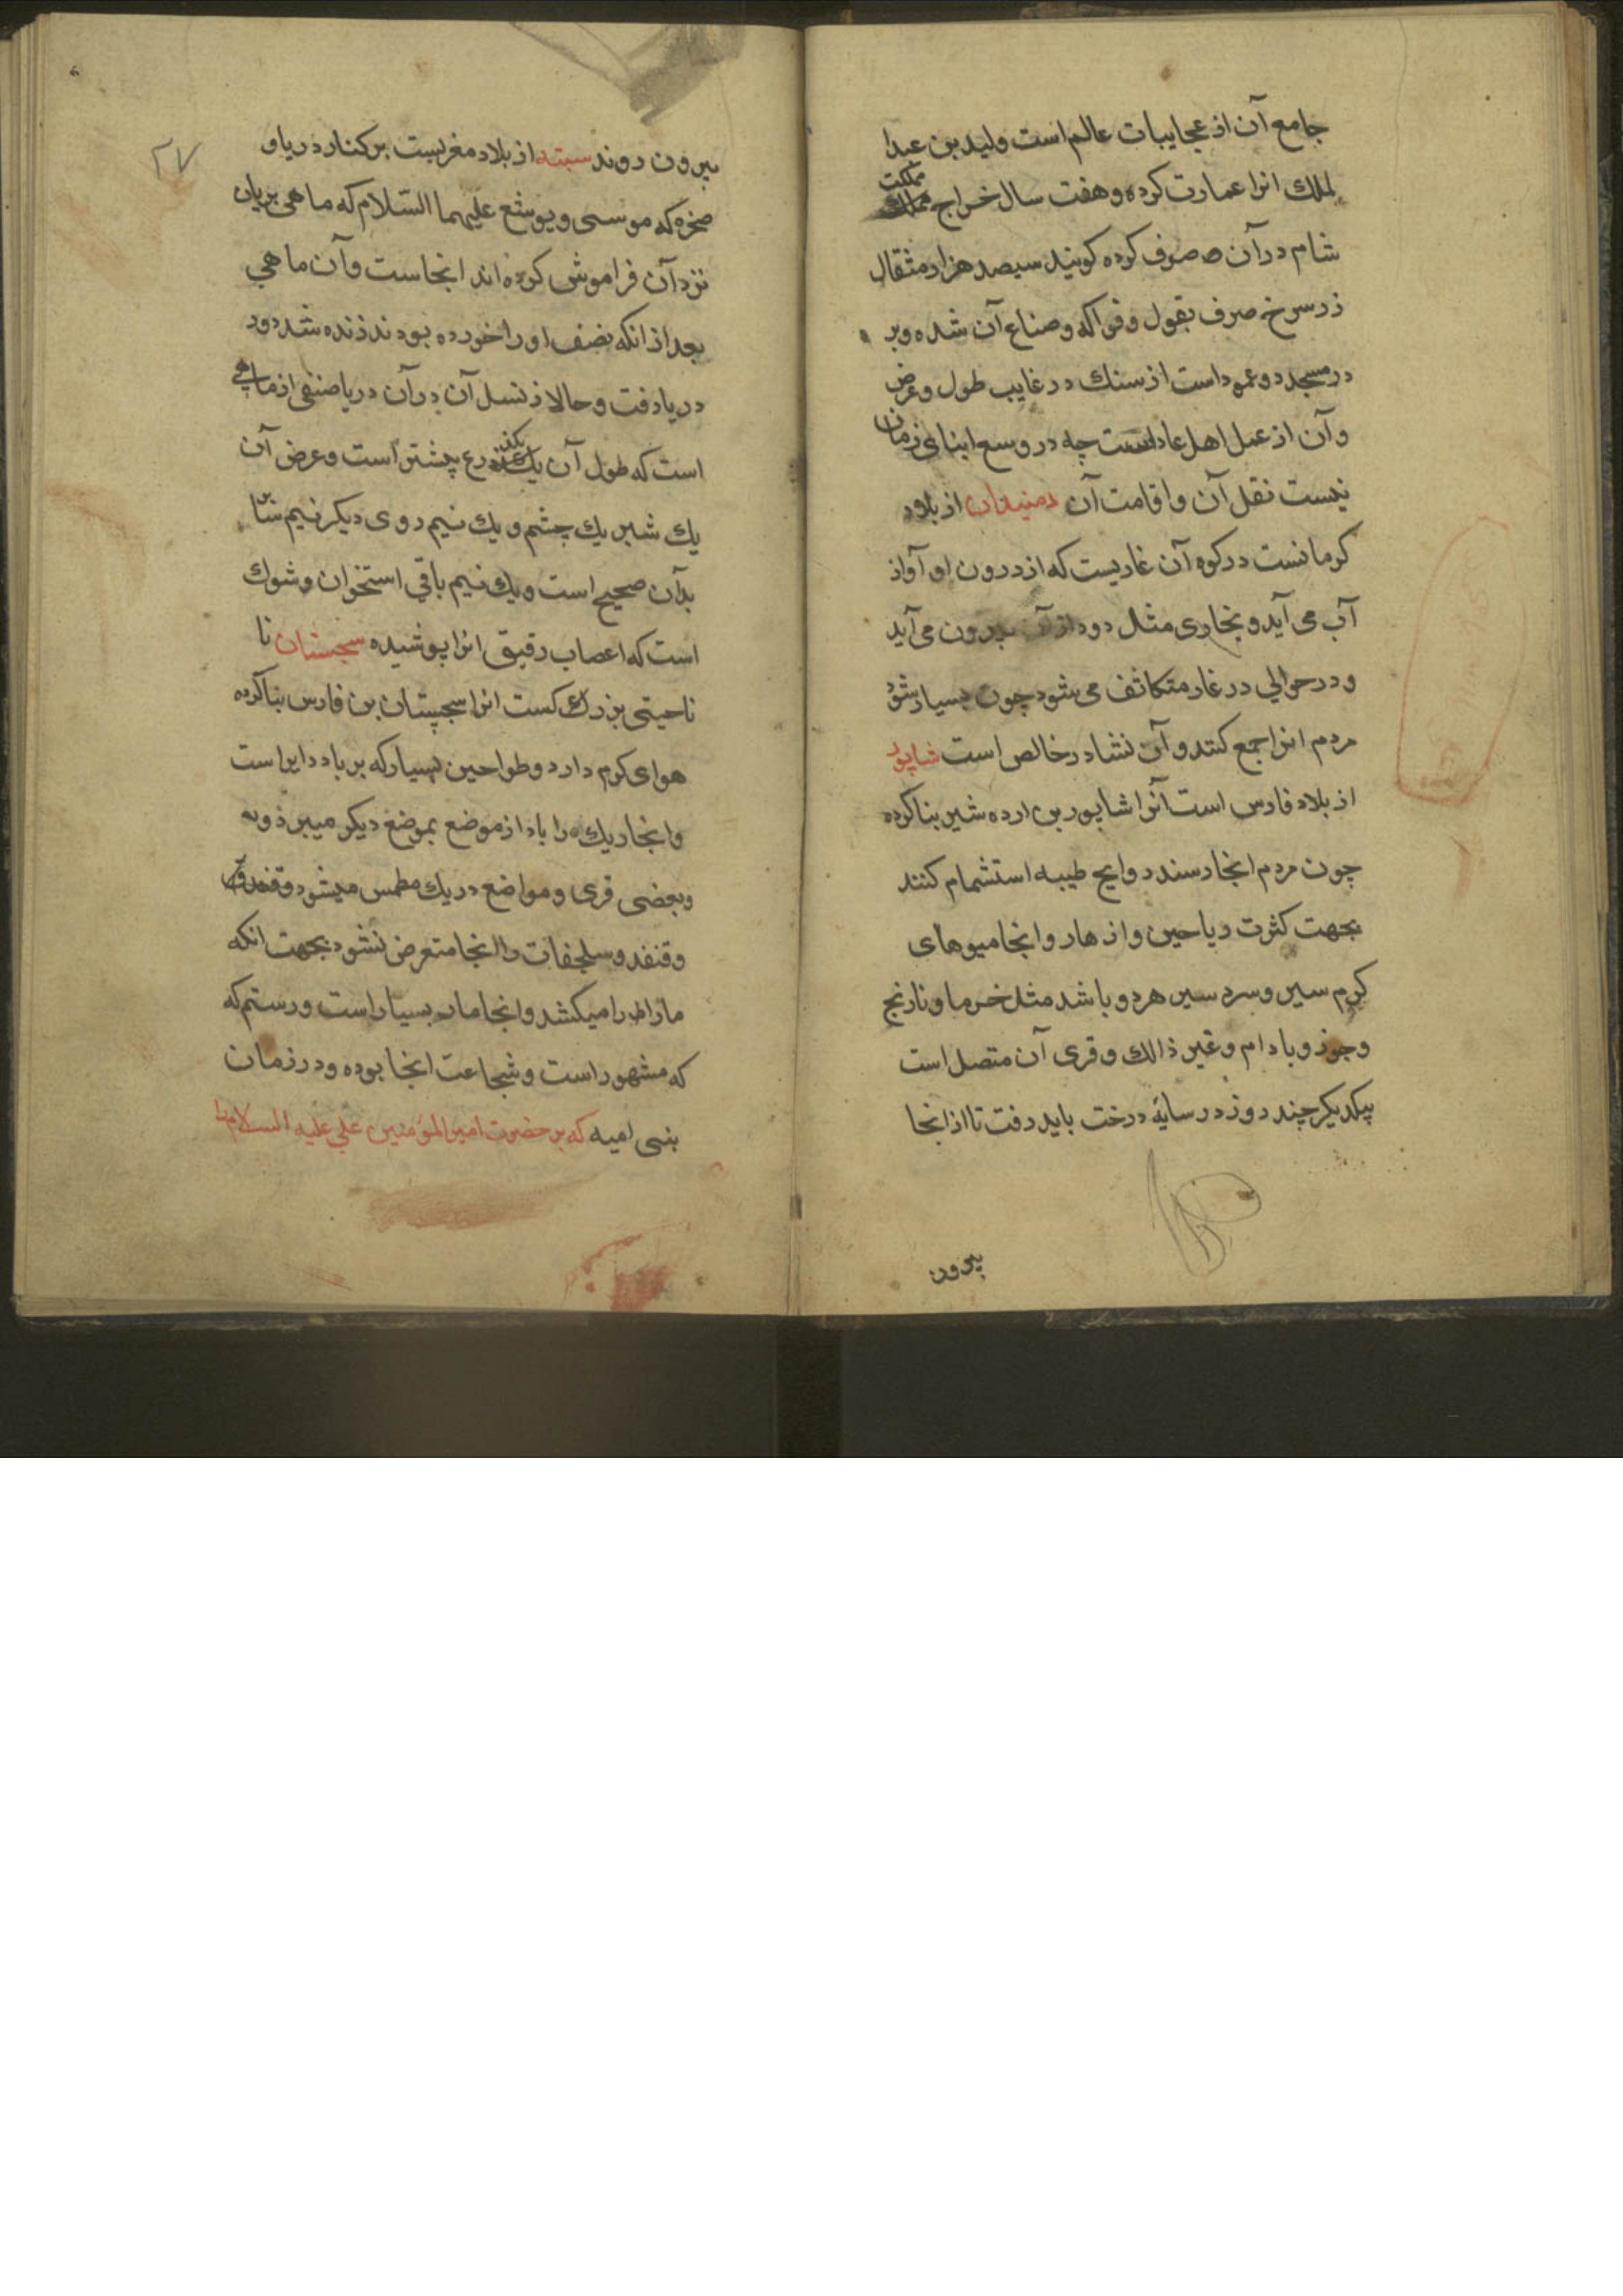 جامع آن از عجایبات عالم است ولید بن عبدا
لملك انرا عمارت کرده و هفت سال خراج مملکت
شام در آن صرف کرده کویند سیصد هزار مثقال
زر سرخ صرف بقول و فواکه و صناع آن شده و بر
در مسجد دو عمود است از سنك در غایب طول و عرض
و آن از عمل اهل عاد است چه در وسع ابنای زمان
نیست نقل آن و اقامت آن دمنیدان از بلاد
کرمانست در کوه آن غاریست که از درون او آواز
آب می آید و بخاری مثل دود از آن بیرون می آید
و در حوالی در غار متکاثف می شود چون بسیار شود
مردم انرا جمع کنند و آن نشادر خالص است شاپور
از بلاد فارس است آنرا شاپور بن اردشیر بنا کرده
چون مردم انجا رسند روایح طیبه استشمام کنند
بجهت کثرت ریاحین و ازهار و انجا میوهای
کرم سیر و سرد سیر هر دو باشد مثل خرما و نارنج
و جوز و بادام و غیر ذالك و قری آن متصل است
بیکدیکر چند روز در سایهٔ درخت باید رفت تا از انجا
بیرون
۲۷
بیرون روند سبته از بلاد مغربست بر کنار دریا و
صخره که موسی و یوشع علیهما السّلام که ماهی بریان
نزد آن فراموش کرده اند انجاست و آن ماهی
بعد از انکه نصف او را خورده بودند زنده شد و در
دریا رفت و حالا از نسل آن در آن دریا صنفی از ماهی
است که طول آن یك ذرع بیشتر است و عرض آن
یك شبر یك چشم و یك نیم روی دیکر نیم
بدآن صحیح است و یك نیم باقی استخوان و شوك
است که اعصاب رقیق انرا پوشیده سجستان نا
ناحیتی بزرك است انرا سجستان بن فارس بنا کرده
هوای کرم دارد و طواحین بسیار که بر باد دایر است
و انجا ریك را باد از موضع بموضع دیکر میبرد و
و بعضی قری و مواضع در ریك مطمس میشود و قنفد
و قنفد و سلحفات را انجا متعرض نشود بجهت انکه
مار را میکشد و انجا مار بسیار است و رستم که
که مشهور است و شجاعت انجا بوده و در زمان
بنی امیه که بر حضرت امیر المؤمنین علی علیه السلام